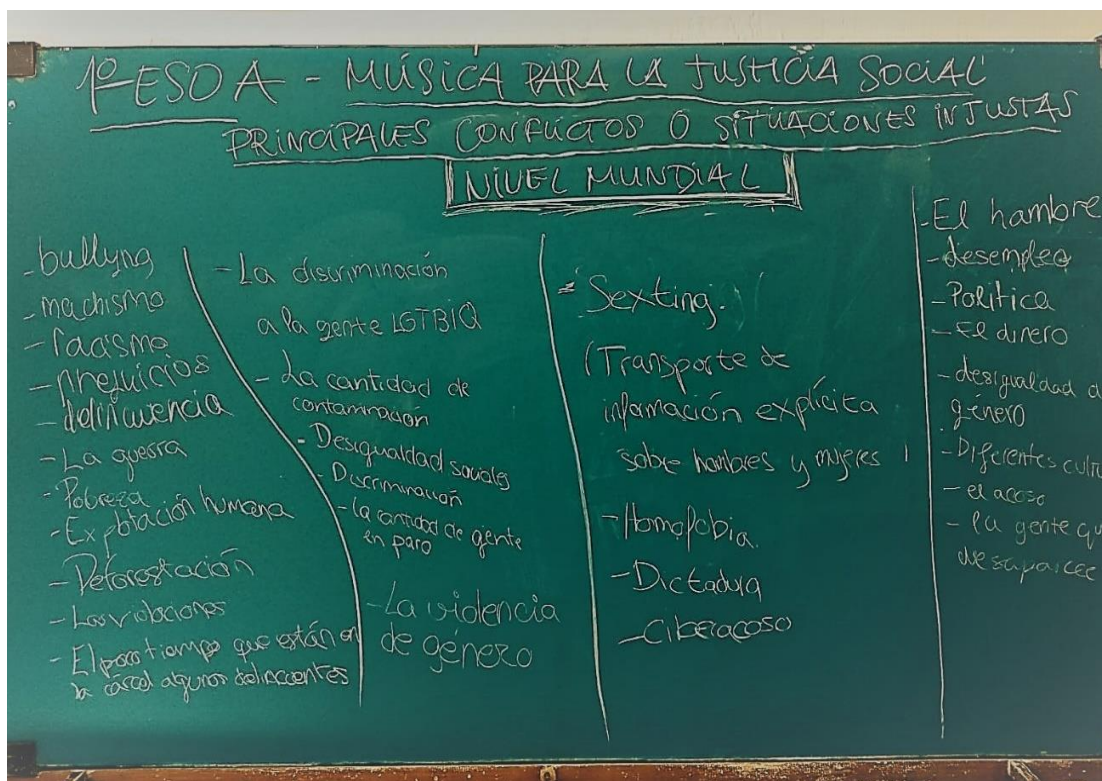 1º ESO A - MÚSICA PARA LA JUSTICIA SOCIAL
PRINCIPALES CONFLICTOS O SITUACIONES INJUSTAS
NIVEL MUNDIAL
- bullyng
- machismo
- racismo
- delincuencia
- La guerra
- Pobreza
- Explotación humana
- Deforestación
- Las violaciones
- El poco tiempo que están en
la cárcel algunos delincuentes
- La discriminación
a la gente LGTBIQ
- La cantidad de
contaminación
- Desigualdad sociales
- Discriminación
- La cantidad de gente
en paro
- La violencia
de género
- Sexting.
(Transporte de
información explícita
sobre hombres y mujeres
- Homofobia.
- Dictadura
- Ciberacoso
- El hambre
- desempleo
- Política
- El dinero
- desigualdad d
género
- Diferentes cultu
- el acoso
- la gente qu
desaparece